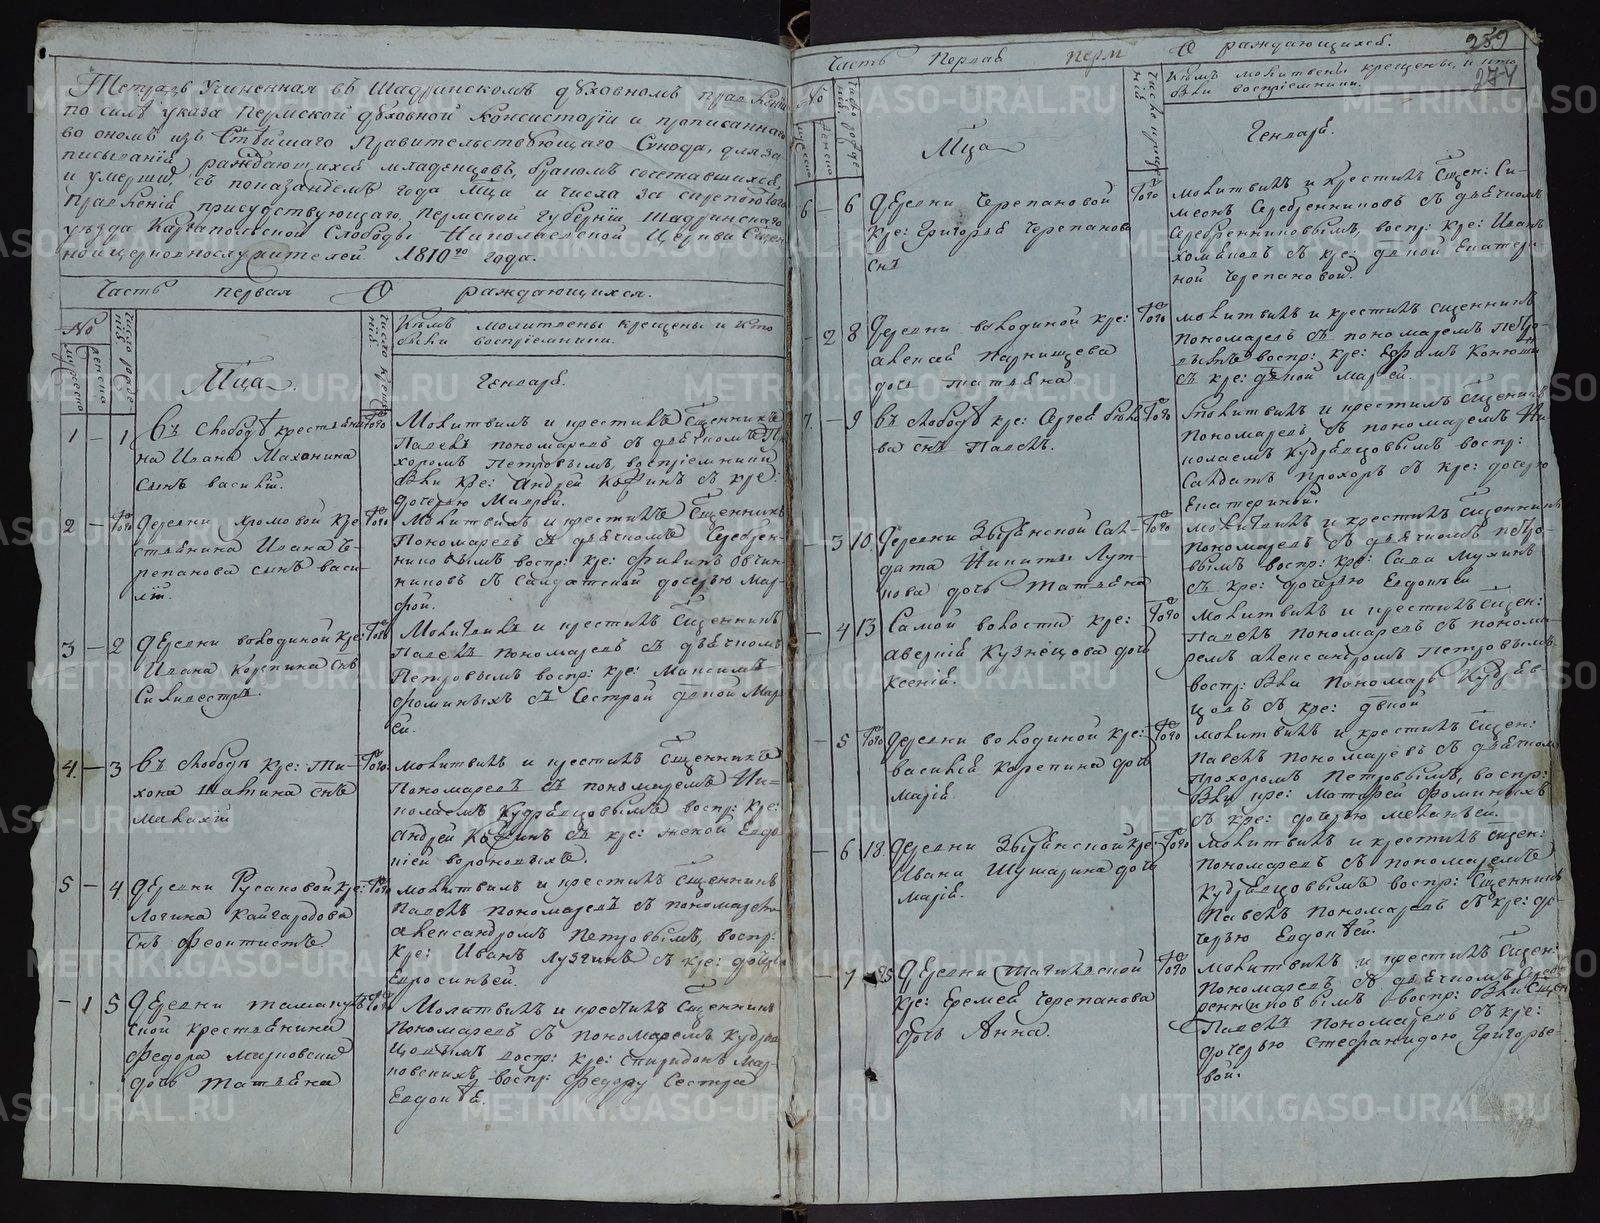 Тетрадь Учиненная въ Шадринскомъ духовномъ правленіи
по силѣ указа Пермской духовной Консисторіи и прописаннаго
во ономъ изъ Святѣйшаго Правительствующаго Синода, для за-
писыванія раждающихся младенцовъ, бракомъ сочетавшихся,
и умерших, съ показаніемъ года Мца и числа за скрепою того
Правленія присудствующаго, Пермской Губерніи Шадринскаго
уѣзда Катапольской Слободы Николаевской Церкви Сщен
ноицерковнослужителей 1810го года.
Часть первая О раждающихся.
No
мужеска
женска
число рожде
нія
Мца
число крещенія
Кѣмъ молитвены крещены и кто
были воспріемники.
Генваря.
1 – 1 Въ слободѣ крестьяни
на Ивана Маханина
сынъ василій.
Того
Молитвилъ и крестилъ Сщенникъ
Павелъ пономаревъ съ дьячкомъ Про
хоромъ Петровымъ, воспріемники
были кре: Андрей Ко инъ съ кре:
дочерью Маврой.
2 – Того Деревни хромовой кре
стьянина Ивана Че-
репанова сынъ васи-
лій.
Того
Молитвилъ и крестилъ Сщенникъ
Пономаревъ съ дьячкомъ Серебрен-
никовымъ воспр: кре: Филипъ Овчин
никовъ съ Салдатской дочерью Мар-
фой.
3 – 2 Деревни володиной кре:
Ивана Корепина снъ
Силивестръ.
Того
Молитвилъ и крестилъ Сщенникъ
Павелъ Пономаревъ съ дьячкомъ
Петровымъ воспр: кре: Максимъ
фоминыхъ съ Сестрой дѣвкой Мар
ей.
4. – 3 Въ слободѣ кре: Ти-
хона Шатина снъ
Малахій
Того.
молитвилъ и крестилъ Сщенникъ
Пономаревъ съ пономаремъ Ни-
колаемъ Кудрявцовымъ воспр: кре:
Андрей Ко инъ съ кре: женкой Евдо
кіей вороновыхъ.
5 – 4. Деревни Русаковой кре:
Логина Кайгародова
снъ феоктистъ
Того
молитвилъ и крестилъ Сщенникъ
Павелъ пономаревъ съ пономаремъ
александромъ Петровымъ, воспр:
кре: Иванъ лузгинъ съ кре: дочерью
Евросиньей.
– 1 5 Деревни тамакуль
ской крестьянина
федора марковскаго
дочь татьяна
Того
Молитвилъ и крестилъ Сщенникъ
Пономаревъ съ пономаремъ Кудряв
цовымъ воспр: кре: спиридонъ Мар-
ковскихъ, воспр: федору Сестра
Евдокѣя.
Часть Первая перм О раждающихся.
259
274
No
мужеска
женска
число рожде
нія
Мца
число крещенія
Кѣмъ молитвены крещены, и кто
были воспріемники.
Генваря.
6 – 6 Деревни Черепановой
кре: Григорья Черепанова
снъ
Того
молитвилъ и крестилъ Сщен: Си-
меонъ Серебренниковъ съ дьячкомъ
Серебренниковымъ, воспр: кре: Иванъ
хомяковъ съ кре: дѣвкой Екатери
ной Черепановой.
– 2 8 Деревни володиной кре:
алексѣя Паршищева
дочь татьяна
Того
молитвилъ и крестилъ сщенникъ
Пономаревъ съ пономаремъ петро-
вымъ воспр: кре: Ефимъ Конюш
съ кре: дѣвкой Марьей.
7. – 9 Въ слободѣ кре: Сергея
ва снъ Павелъ.
Того
Молитвилъ и крестилъ Сщенникъ
Пономаревъ съ пономаремъ Ни-
колаемъ Кудрявцовымъ воспр:
Салдатъ прохоръ съ кре: дочерью
Екатериной.
– 3 10. Деревни Зырянской Сал-
дата Никиты Лут-
кова дочь татьяна
Того
молитвилъ и крестилъ Сщенникъ
Пономаревъ съ дьячкомъ петро-
вымъ воспр: кре: Сава мухинъ
съ кре: дочерью Евдокьей
– 4 13 Самой волости кре:
аверкія Кузнецова дочь
Ксенія.
Того
молитвилъ и крестилъ Сщен:
Павелъ Пономаревъ съ понома-
ремъ александромъ Петровымъ
воспр: были Пономарь Кудряв-
цовъ съ кре: дѣвкой
– 5 Того Деревни володиной кре:
василья Карепина дочь
Марія.
Того
молитвилъ и крестилъ Сщен:
Павелъ Пономаревъ съ дьячкомъ
Прохоромъ Петровымъ, воспр:
были кре: Матфей фоминыхъ
съ кре: дочерью меланьей.
– 6 18. Деревни Зырянской кре:
Ивана Шушарина дочь
Марія.
Того
Молитвилъ и крестилъ Сщен:
Пономаревъ съ пономаремъ
Кудрявцовымъ воспр: Сщенникъ
Павелъ Пономаревъ съ кре: до-
черью Евдокѣей.
– 7 25 Деревни Тагильской
кре: Еремея Черепанова
дочь Анна.
Того
молитвилъ и крестилъ Сщен:
Пономаревъ съ дьячкомъ Сереб
ренниковымъ воспр: были Сщен
Павелъ Пономаревъ съ кре:
дочерью стефанидою Григорье-
вой.
METRIKI.GASO-URAL.RU